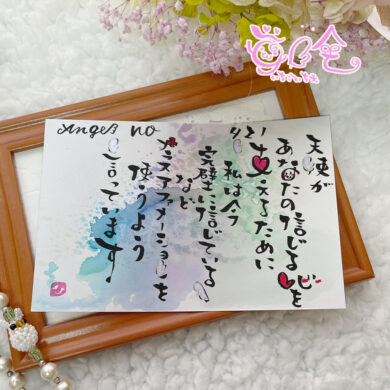 Angel no
天使が
あなたの信じる心を
支えるために
私は今
完璧に信じている
など
アファメーションを
使うよう
言っています。